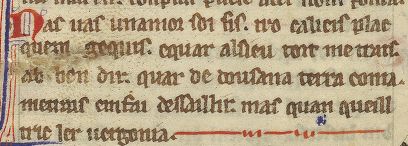 Mas uas unamor soi fis. tro calieis plac
quem gequis. equar alsieu tort me truis.
ab ben dir. quar de dousana terra coma
metuis enfiu dessaillir. mas quan queill
trie ser uergonia.